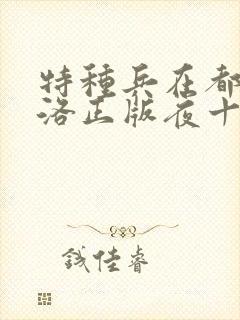 特種兵在都
洛正版夜十
钱佳睿